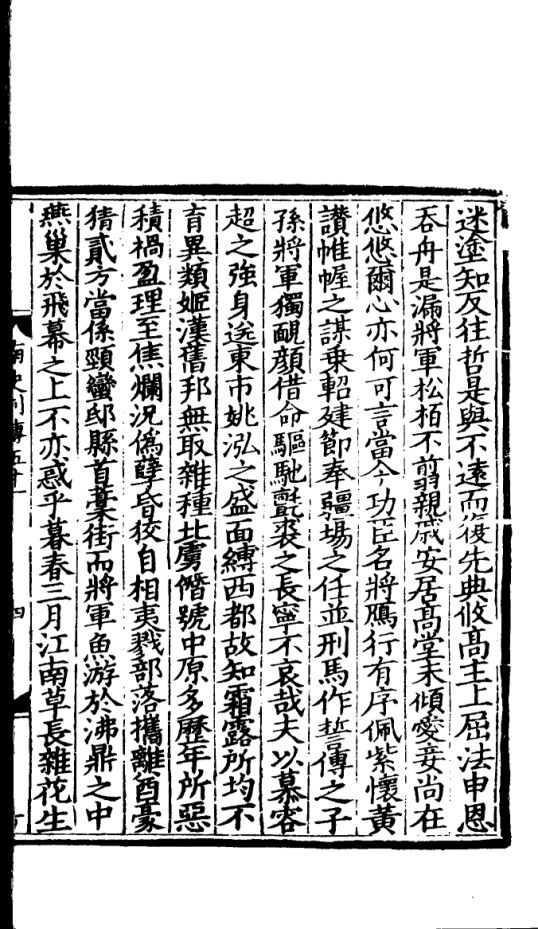 迷塗知反往哲是與不遠而復先典攸高主上屈法申恩
吞舟是漏將軍松栢不翦親戚安居高堂未傾愛妾尚在
悠悠爾心亦何可言當今功臣名將鴈行有序佩紫懷黃
讃帷幄之謀乗軺建節奉疆埸之任並刑馬作誓傳之子
孫將軍獨靦顔借命驅馳氊裘之長寧不哀哉夫以慕容
超之強身送東市姚泓之盛面縛西都故知霜露所均不
育異類姬漢舊邦無取雜種北虜僭號中原多歷年所惡
積禍盈理至焦爛況僞孽昏狡自相夷戮部落攜離酋豪
猜貳方當係頸蠻邸縣首藁街而將軍魚游於沸鼎之中
燕巢於飛幕之上不亦惑乎暮春三月江南草長雜花生
南史列傳五十一
四